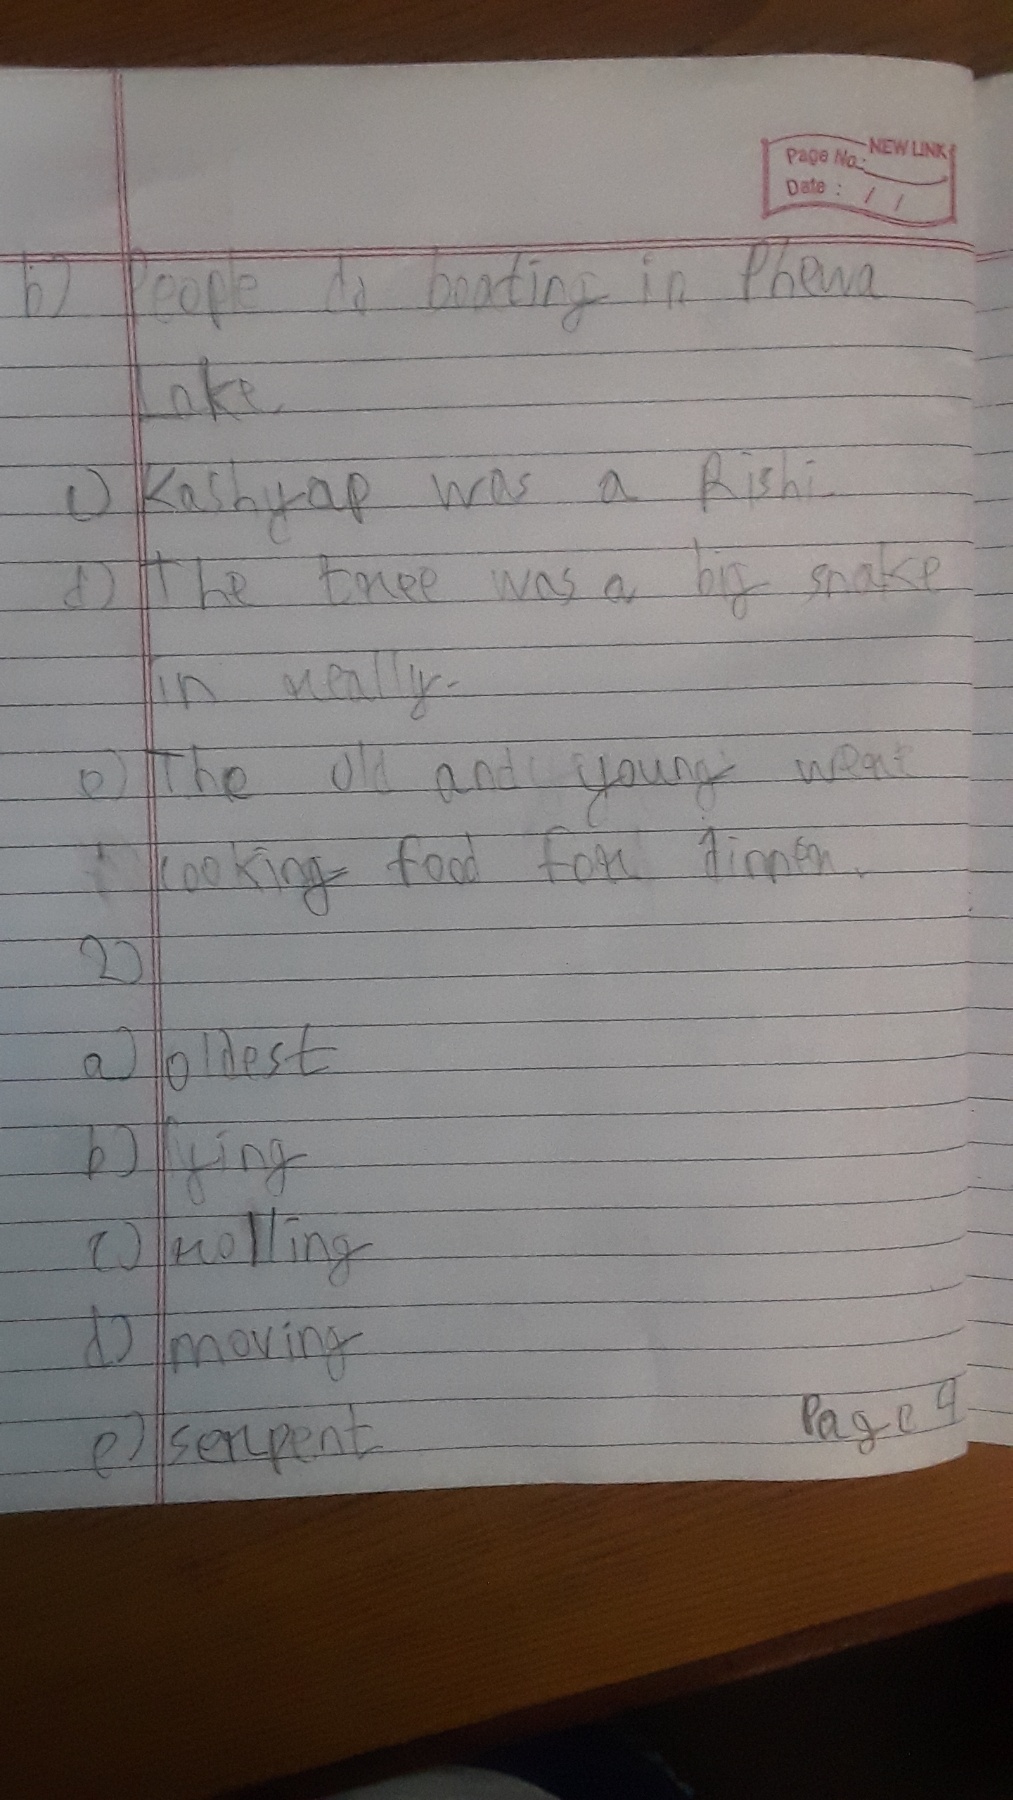 NEW LINK
Page No.:
Date : / /
b) People do boating in Phewa
Lake.
c) Kashyap was a Rishi.
d) The tree was a big snake
in really.
e) The old and young went
cooking food for dinner.
2)
a) oldest
b) lying
c) rolling
d) moving
e) serpent
Page 9